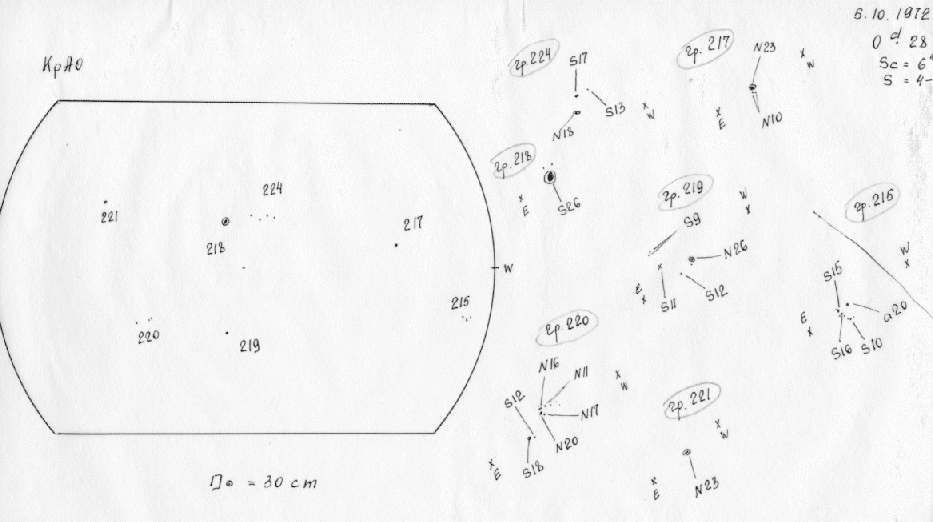 5.10.1972
0 d. 28
Sc = 6
S = 4-
КрАО
221
218
224
217
W
215
220
219
D⊙ = 30 cm
гр.224
S17
S13
N18
W
гр.217
N23
N10
W
E
гр.218
S26
E
гр.219
S9
N26
S12
S11
W
E
гр.215
S15
a20
S10
S16
W
E
гр.220
N16
N11
N17
N20
S12
S18
W
E
гр.221
N23
W
E